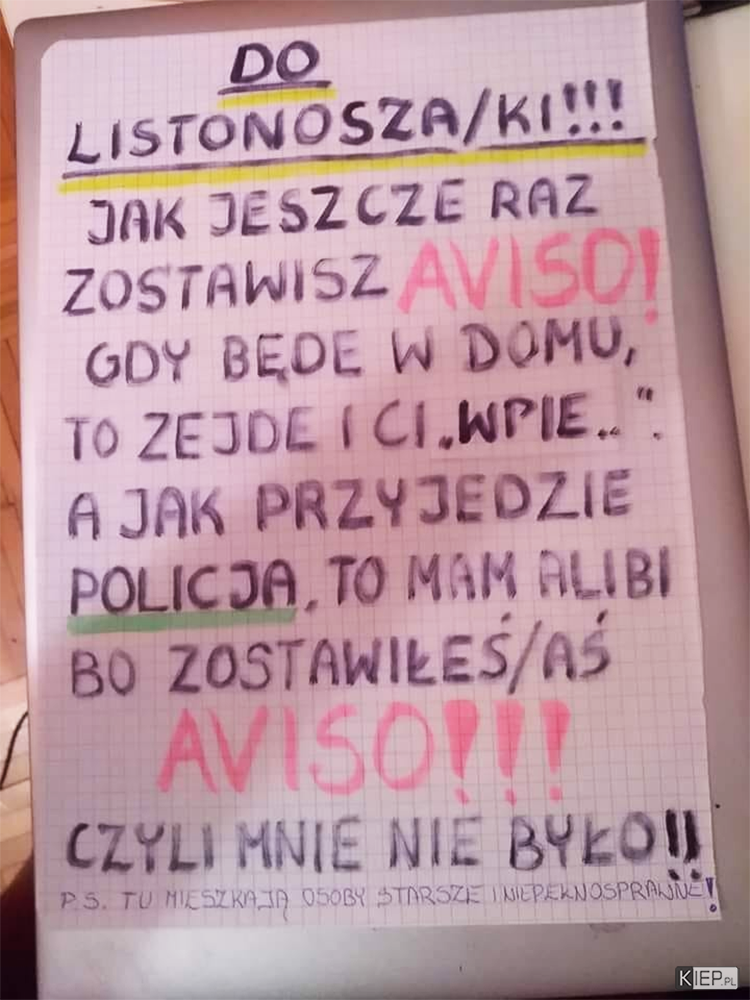 DO
LISTONOSZA/KI!!!
JAK JESZCZE RAZ
ZOSTAWISZ AVISO!
GDY BĘDE W DOMU,
TO ZEJDE I CI „WPIE..".
A JAK PRZYJEDZIE
POLICJA, TO MAM ALIBI
BO ZOSTAWIŁEŚ/AŚ
AVISO!!!
CZYLI MNIE NIE BYŁO!!
P.S. TU MIESZKAJĄ OSOBY STARSZE I NIEPEŁNOSPRAWNE!
KIEP.PL